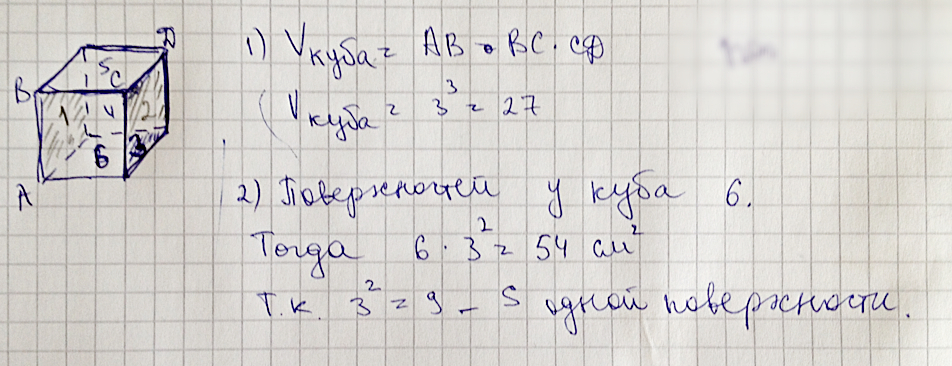 D
5
B
C
1
4
2
6
3
A
1) Vкуба = AB · BC · CD
Vкуба = 3³ = 27
2) Поверхностей у куба 6.
Тогда 6 · 3² = 54 см²
Т.к. 3² = 9 – S одной поверхности.